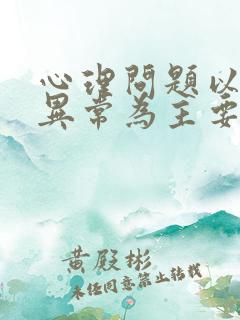 心理問題以
異常為主要
黃殿彬
未經同意禁止轉載